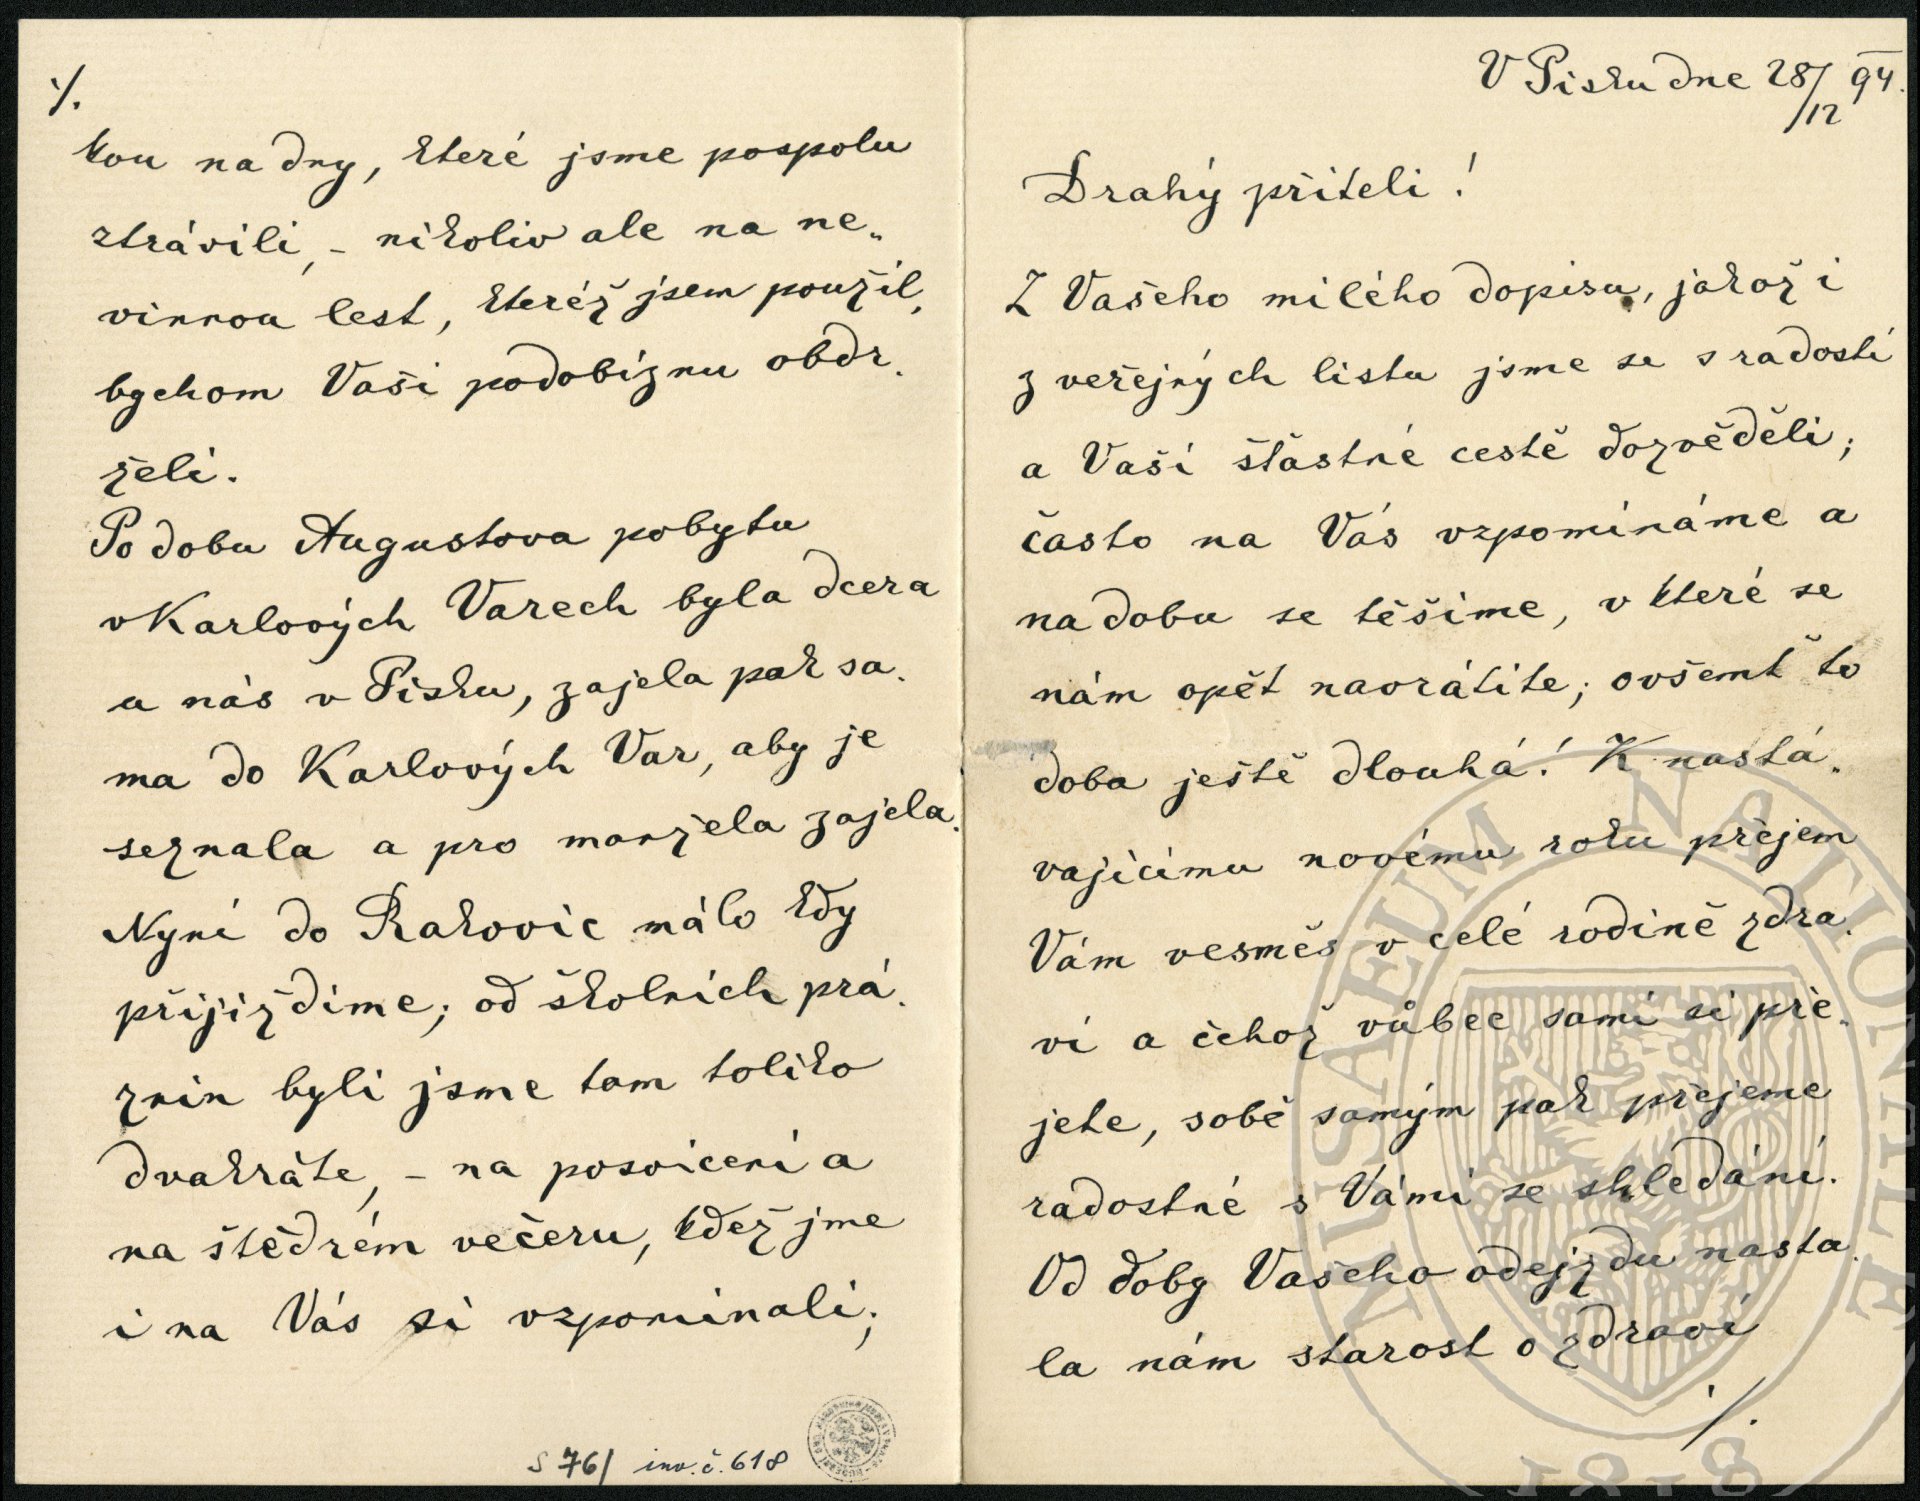 ·/.
kou na dny, které jsme pospolu
ztrávili, – nikoliv ale na ne„
vinnou lest, kteréž jsem použil,
bychom Vaši podobíznu obdr„
želi.
Po dobu Augustova pobytu
v Karlových Varech byla dcera
u nás v Pisku, zajela pak sa„
ma do Karlových Var, aby je
seznala a pro manžela zajela.
Nyní do Rakovic málo kdy
přijiždime; od školních prá„
znin byli jsme tam toliko
dvakráte, – na posvicení a
na štědrém večeru, kdež jme
i na Vás si vzpominali;
S 76/ inv. č. 618
V Pisku dne 28/12 94.
Drahý příteli!
Z Vašeho milého dopisu, jakož i
z veřejných listu jsme se s radostí
a Vaší šťastné cestě dozvěděli;
často na Vás vzpomínáme a
na dobu se těšime, v které se
nám opět navrátite; ovšemť to
doba ještě dlouhá! K nastá„
vajicimu novému roku přejem
Vám vesměs v celé rodině zdra„
ví a čehož vůbec sami si pře„
jete, sobě samým pak přejeme
radostné s Vámi se shledání.
Od doby Vašeho odejzdu nasta„
la nám starost o zdraví
·/.
MUSAEUM NATIONALE
1818